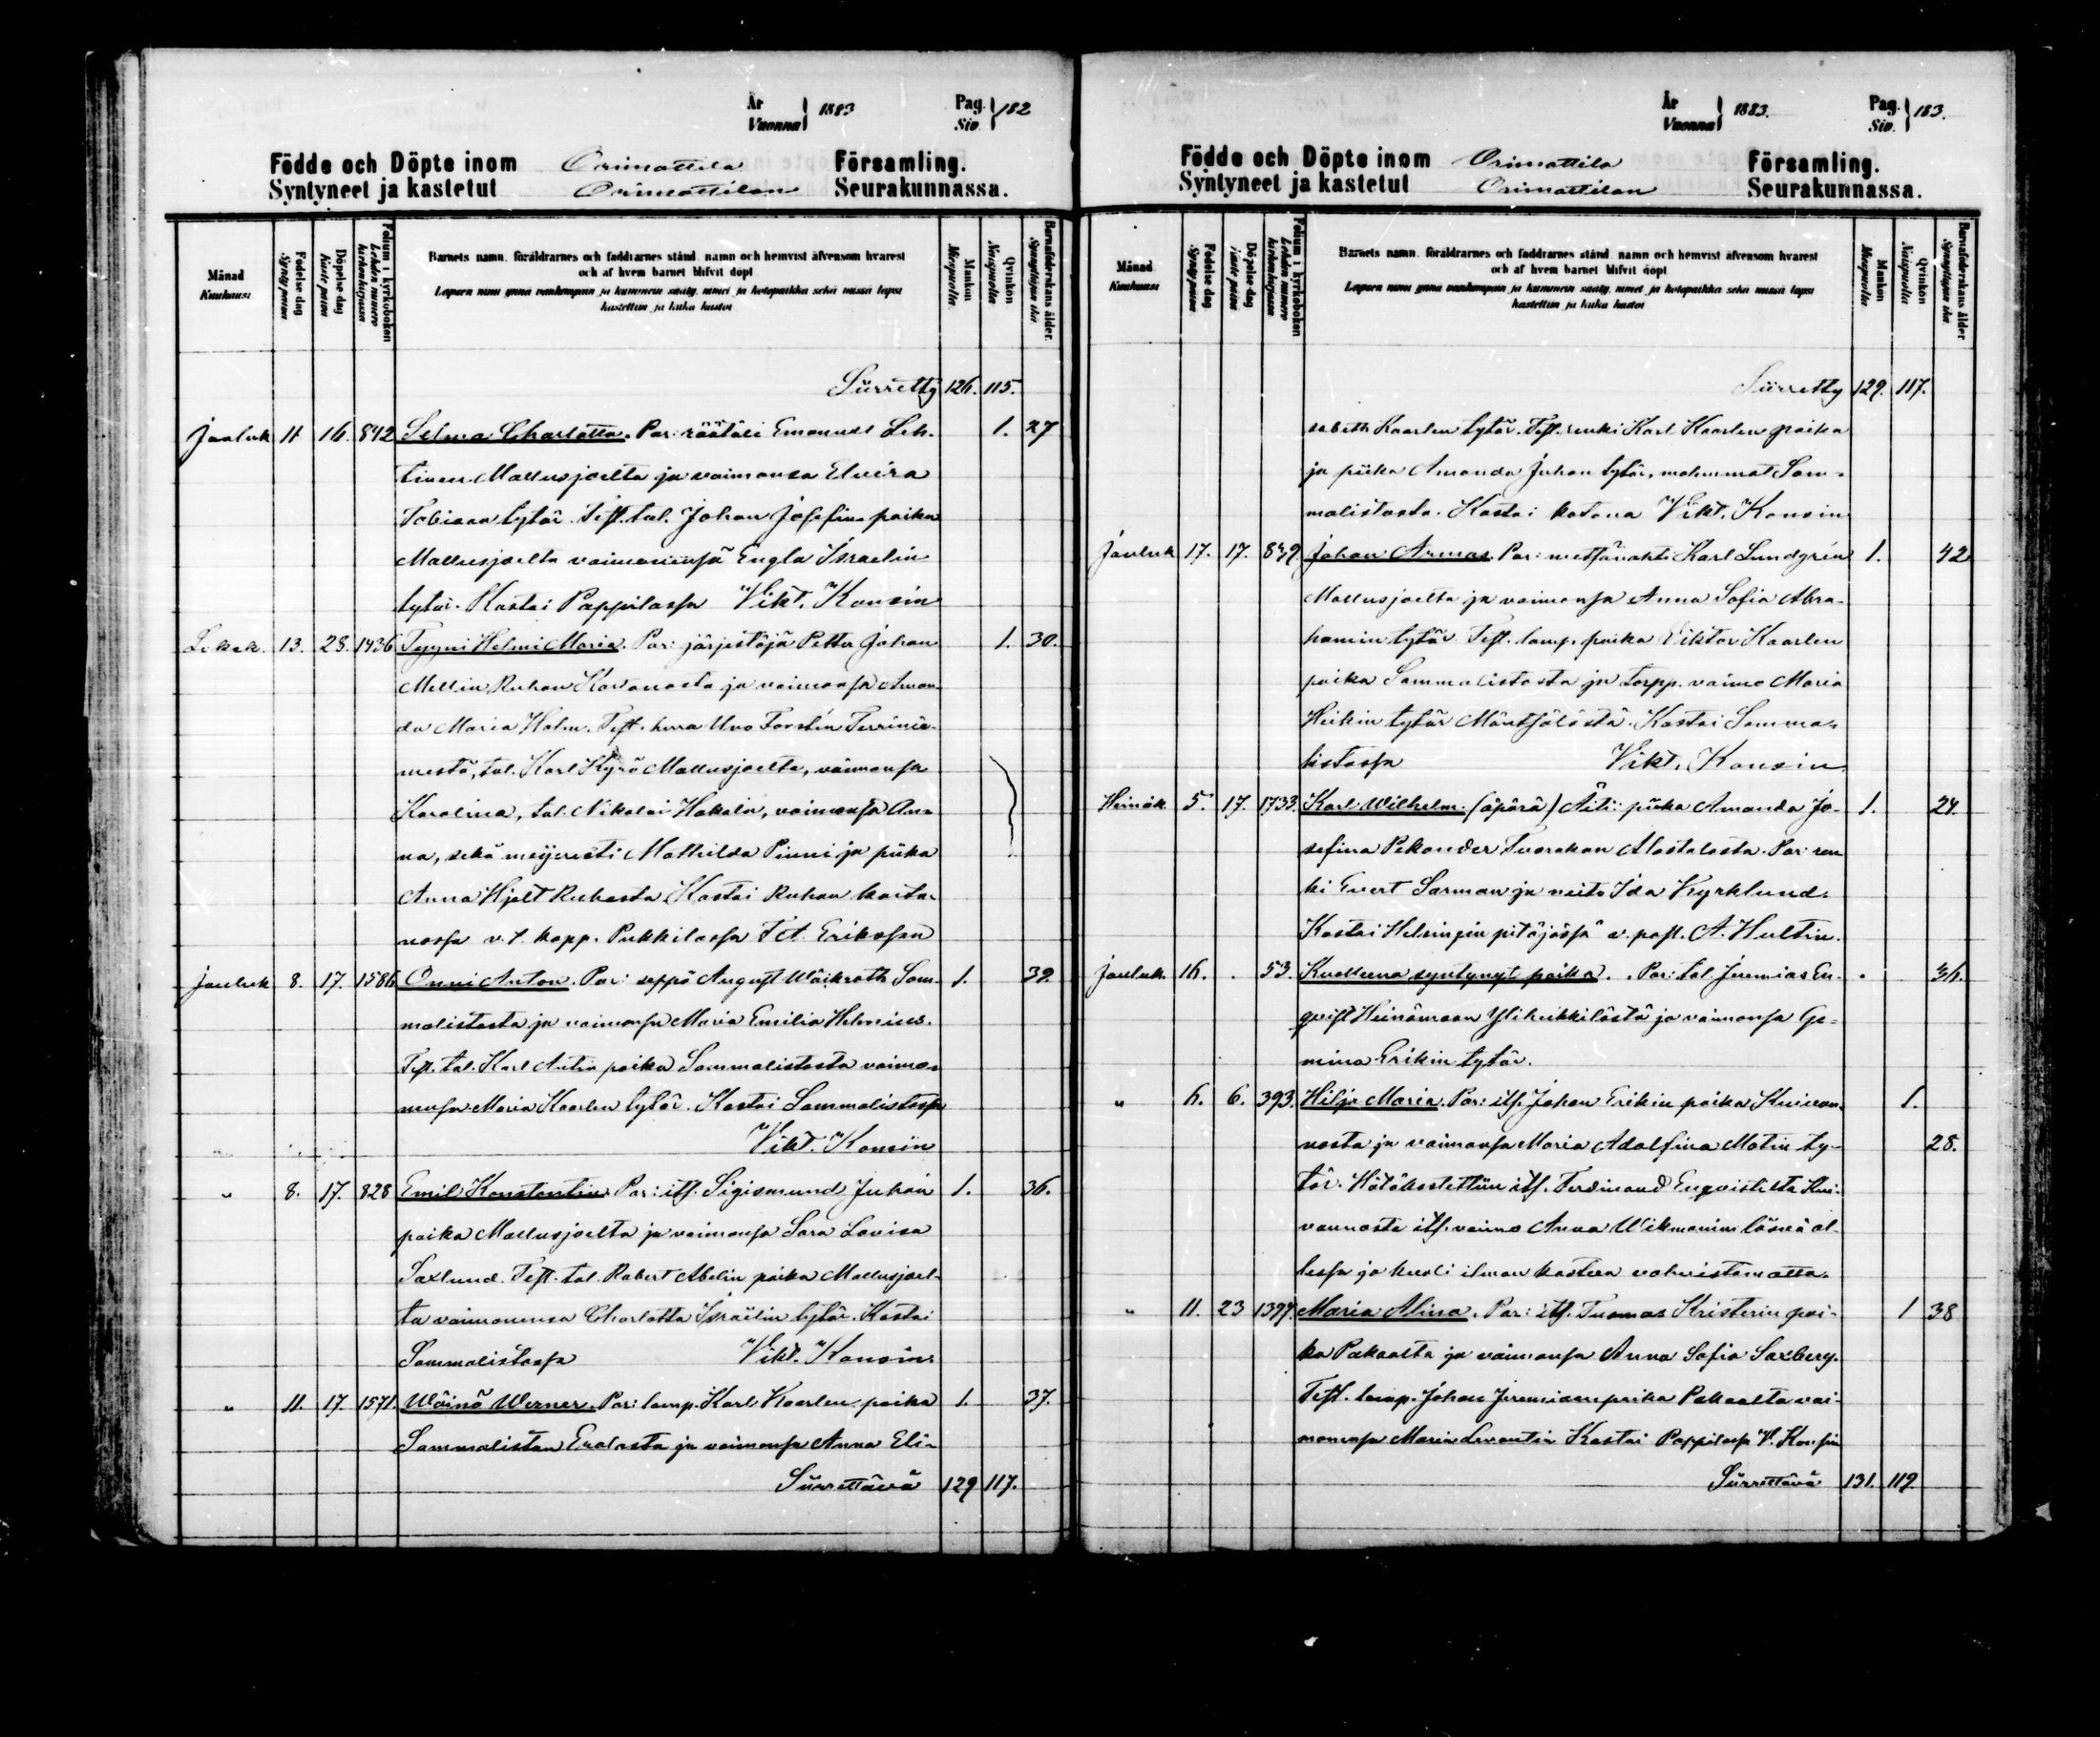 År
Vuonna } 1883
Pag.
Siv. } 182
Födde och Döpte inom Orimattila Församling.
Syntyneet ja kastetut Orimattilan Seurakunnassa.
Månad
Kuukausi
Födelse dag
Syntypäivä
Döpelse dag
Kastepäivä
Folium i kyrkoboken
Lehden numero
kirkonkirjassa
Barnets namn, föräldrarnes och faddrarnes stånd, namn och hemvist äfvensom hvarest
och af hvem barnet blifvit döpt
Lapsen nimi ynnä vanhempain ja kummein sääty, nimet ja kotopaikka sekä missä lapsi
kastettiin ja kuka kastoi
Mankön
Miespuolta
Qvinkön
Naispuolta
Barnaföderskans ålder.
Synnyttäjän ikä
Siirretty 126. 115.
Jouluk 11 16. 842 Selma Charlotta. Par: räätäli Emanuel Leh- 1. 27
tinen Mallusjoelta ja vaimonsa Elvira
Tobiaan tytär. Test. tal. Johan Josefin poika
Mallusjoelta vaimoninsa Engla Israelin
tytär. Kastoi Pappilassa Vikt. Konsin
Lokak. 13. 28. 1436 Tyyni Helmi Maria. Par: järjestäjä Petter Johan 1. 30.
Mellin Ruhan Kartanosta ja vaimonsa Aman-
da Maria Holm. Test. herra Uno Forstén Terrinie-
mestä, tal. Karl Kyrö Mallusjoelta, vaimonsa
Karolina, tal. Nikolai Hakala, vaimonsa An-
na, sekä meijeristi Mathilda Pinni ja piika
Anna Hjelt Ruhasta. Kastoi Ruhan karta-
nossa v.t. kapp. Pukkilassa F. A. Eriksson
Jouluk 8. 17. 1586 Onni Anton. Par: seppä August Wäikroth Som- 1. 39.
malistosta ja vaimonsa Maria Emilia Helenius.
Test. tal. Karl Antin poika Sommalistosta vaimo-
nensa Maria Kaarlen tytär. Kastoi Sommalistossa
Vikt. Konsin
" 8. 17. 828 Emil Konstantin. Par: its. Sigismund Juhan 1. 36.
poika Mallusjoelta ja vaimonsa Sara Lovisa
Saxlund. Test. tal. Robert Abelin poika Mallusjoel-
ta vaimonensa Charlotta Israelin tytär. Kastoi
Sommalistossa Vikt. Konsin.
" 11. 17. 1571. Wäinö Werner. Par: lamp. Karl Kaarlen poika 1. 37.
Sommaliston Eralasta ja vaimonsa Anna Eli-
Siirrettävä 129 117.
År
Vuonna } 1883.
Pag.
Siv. } 183.
Födde och Döpte inom Orimattila Församling.
Syntyneet ja kastetut Orimattilan Seurakunnassa.
Månad
Kuukausi
Födelse dag
Syntypäivä
Döpelse dag
Kastepäivä
Folium i kyrkoboken
Lehden numero
kirkonkirjassa
Barnets namn, föräldrarnes och faddrarnes stånd, namn och hemvist äfvensom hvarest
och af hvem barnet blifvit döpt
Lapsen nimi ynnä vanhempain ja kummein sääty, nimet ja kotopaikka sekä missä lapsi
kastettiin ja kuka kastoi
Mankön
Miespuolta
Qvinkön
Naispuolta
Barnaföderskans ålder
Synnyttäjän ikä
Siirretty 129. 117.
sabeth Kaarlen tytär. Test. renki Karl Kaarlen poika
ja piika Amanda Juhan tytär, molemmat Som-
malistosta. Kastoi kotona Vikt. Konsin
Jouluk 17. 17. 839 Johan Armas. Par: metsänvahti Karl Lundgrén 1. 42
Mallusjoelta ja vaimonsa Anna Sofia Abra-
hamin tytär. Test. lamp. poika Viktor Kaarlen
poika Sammalistosta ja torpp. vaimo Maria
Heikin tytär Mäntsälästä. Kastoi Somma-
listossa Vikt. Konsin.
Heinäk 5. 17. 1733. Karl Wilhelm. (äpärä) Äiti: piika Amanda Jo- 1. 24.
sefina Pekander Tuorakan Alastalosta. Par: ren
ki Evert Sarman ja neito Ida Kyrklund.
Kastoi Helsingin pitäjässä v. past. A. Hultin.
Jouluk 16. . 53. Kuolleena syntynyt poika. . Par: tal. Jeremias En- . 36.
qvist Heinämaan Yliheikkilästä ja vaimonsa Ge-
mina Erikin tytär.
" 6. 6. 393. Hilja Maria. Par: its. Johan Erikin poika Kuivan- 1.
nosta ja vaimonsa Maria Adolfina Matin ty- 28.
tär. Hätäkastettiin its. Ferdinand Enqvistilta Kui-
vannosta its. vaimo Anna Wikmanin läsnä ol-
lessa ja kuoli ilman kasteen vahvistamatta.
" 11. 23 1397. Maria Alina. Par: its. Tuomas Kristerin poi- 1 38
ka Pakaalta ja vaimonsa Anna Sofia Saxberg.
Test. lamp. Johan Jeremiaan poika Pakaalta vai-
monensa Maria Leventin Kastoi Pappilassa V. Konsin
Siirrettävä 131. 119.